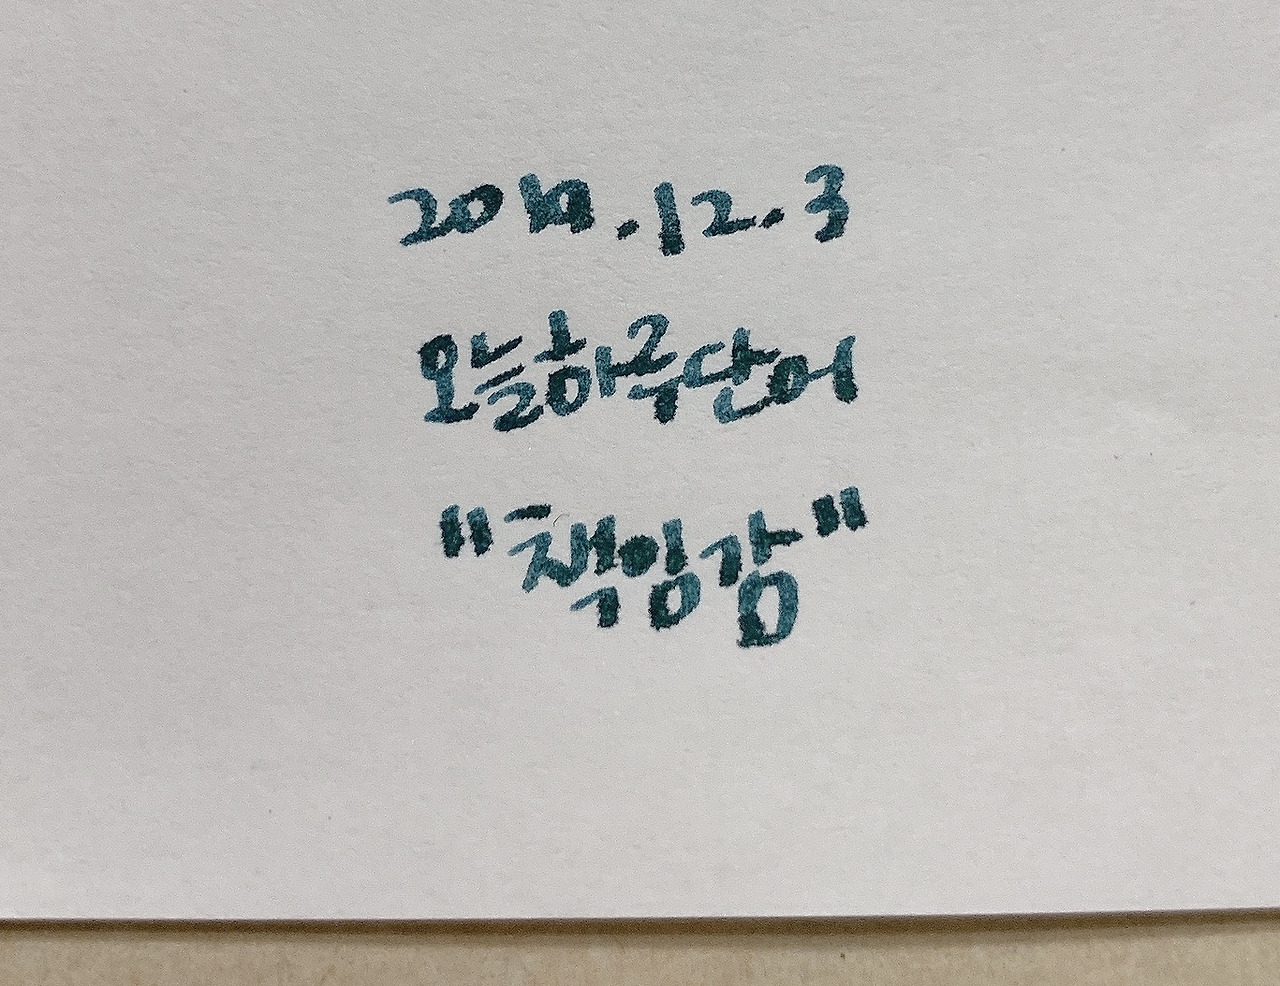 2019.12.3
오늘하루단어
"책임감"